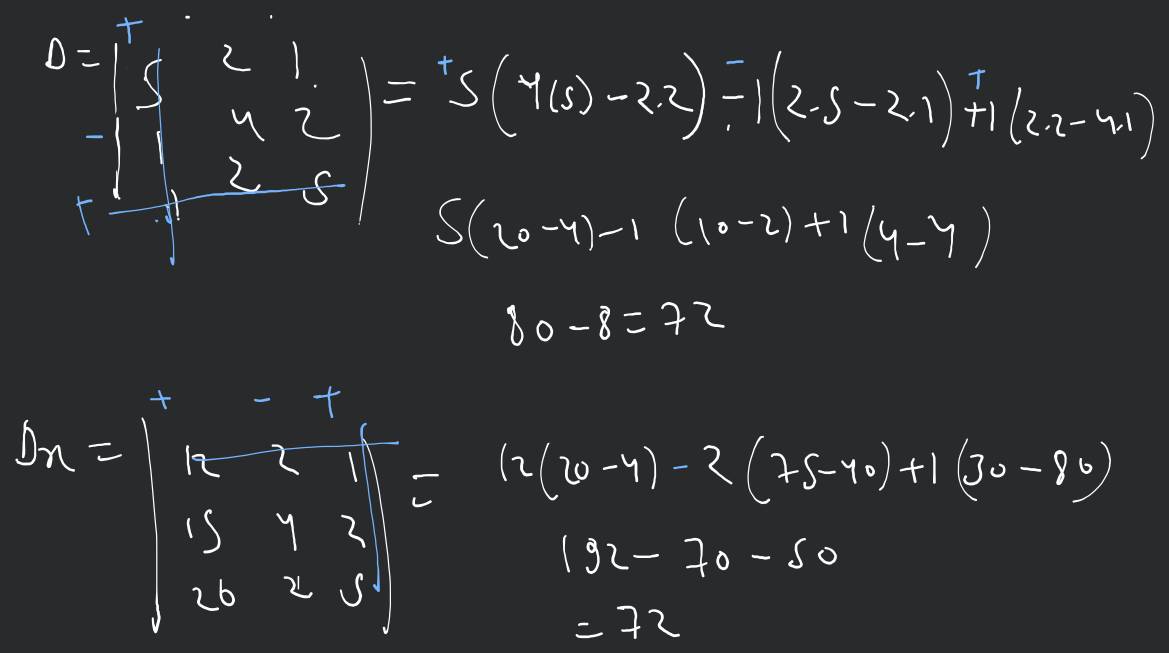 +
D = | 5 2 1 | = + 5 ( 4(5) - 2.2 ) - 1 ( 2.5 - 2.1 ) + 1 ( 2.2 - 4.1 )
- | 1 4 2 |
+ | 1 2 5 |
5 ( 20 - 4 ) - 1 ( 10 - 2 ) + 1 ( 4 - 4 )
80 - 8 = 72
+ - +
Dx = | 12 2 1 | = 12 ( 20 - 4 ) - 2 ( 75 - 40 ) + 1 ( 30 - 80 )
| 15 4 2 |
192 - 70 - 50
| 20 2 5 |
= 72